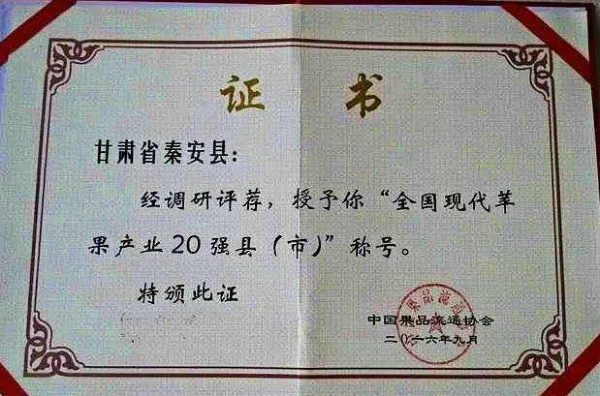 证 书
甘肃省秦安县：
经调研评荐，授予你“全国现代苹
果产业20强县（市）”称号。
特颁此证
中国果品流通协会
二〇一六年九月